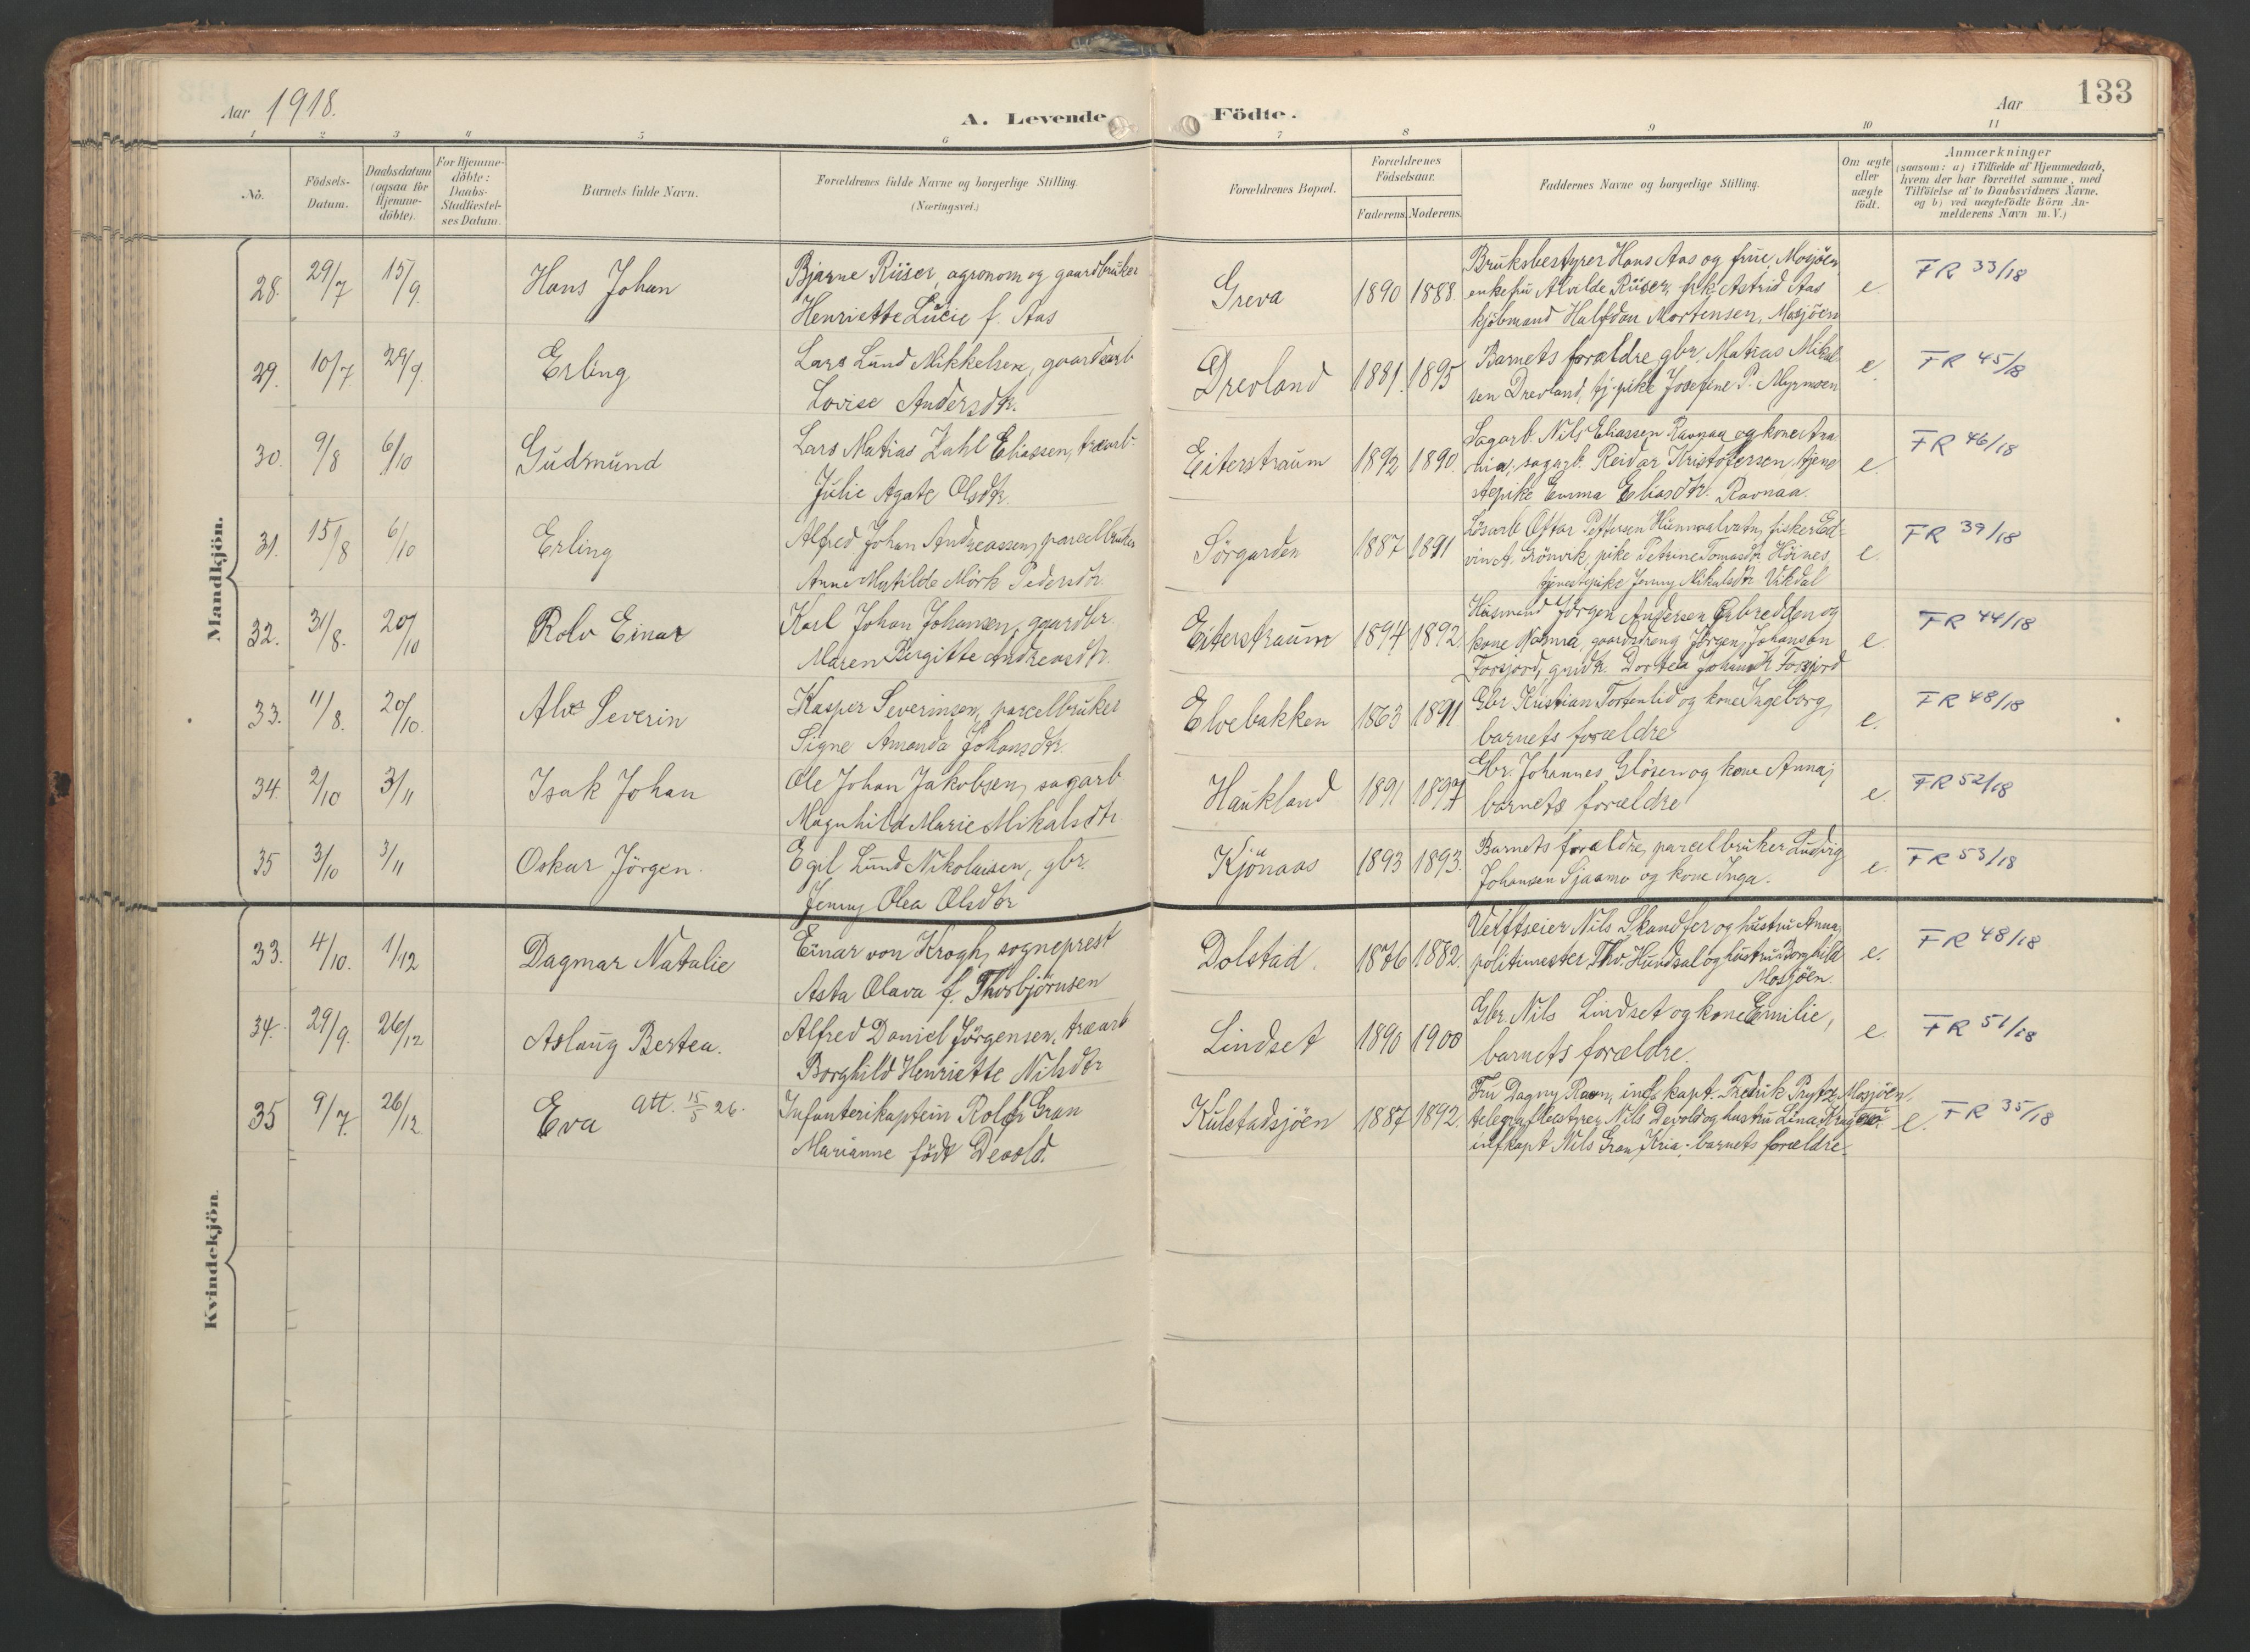 133
Aar 1918.
A. Levende Födte.
Aar
1 2 3 4 5 6 7 8 9 10 11
No.
Födsels-Datum.
Daabsdatum (ogsaa for Hjemme-döbte).
For Hjemme-döbte: Daabs-Stadfæstel-ses Datum.
Barnets fulde Navn.
Forældrenes fulde Navne og borgerlige Stilling.
(Næringsvei.)
Forældrenes Bopæl.
Forældrenes Födselsaar.
Faderens. Moderens.
Faddernes Navne og borgerlige Stilling.
Om ægte eller uægte födt.
Anmærkninger
(saasom: a) i Tilfælde af Hjemmedaab,
hvem der har forrettet samme, med
Tilföielse af to Daabsvidners Navne,
og b) ved uægtefödte Börn An-
melderens Navn m. V.)
Mandkjön.
28. 29/7 15/9 Hans Johan
Bjarne Riiser, agronom og gaardbruker
Henriette Lucie f. Aas
Greva 1890 1888.
Bruksbestyrer Hans Aas og frue, Mosjöen,
enkefru Alvilde Riiser, frk. Astrid Aas
kjöbmand Halfdan Mortensen, Mosjöen
e. FR 33/18
29. 10/7 29/9 Erling
Lars Lund Mikkelsen, gaardarb
Lovise Andersdtr.
Drevland 1881. 1895
Barnets forældre, gbr. Matias Mikal-
sen Drevland, tj. pike Josefine P. Myrmoen
e. FR 45/18
30. 9/8 6/10 Gudmund
Lars Matias Zahl Eliassen, træarb-
Julie Agate Olsdtr.
Eiterstraum 1892 1890.
Sagarb. Nils Eliassen Ravnaa og kone Ana
nia, sagarb. Reidar Kristofersen, tjene
stepike Emma Eliasdtr. Ravnaa.
e. FR 46/18
31. 15/8 6/10 Erling
Alfred Johan Andreassen, parcelbruker
Anne Matilde Mörk Pedersdtr.
Sörgarden 1887 1891
Lösarb Ottar Pettersen Hunnaalvatn, fisker Ed-
vin A. Grönvik, pike Petrine Tomasdtr. Höines,
tjenestepike Jenny Nikalsdtr Vikdal
e. FR 39/18
32. 31/8. 20/10 Rolv Einar
Karl Johan Johansen, gaardbr.
Maren Bergitte Andreasdtr.
Eiterstraum 1894 1892
Husmand Jörgen Andersen Örbredden og
kone Norma, gaardsdreng Jörgen Johansen
Forsjord, Dortea Johansdtr Forsjord
e. FR 44/18
33. 11/8. 20/10. Alvs Severin
Kasper Severinsen, parcelbruker
Signe Amanda Johansdtr.
Elvebakken 1863 1891
Gbr. Kristian Tortenlid og kone Ingeborg,
barnets forældre
e. FR 48/18
34. 2/10 3/11 Isak Johan
Ole Johan Jakobsen, sagarb
Magnhild Marie Mikalsdtr
Haukland 1891 1897
Gbr. Johannes Glösen og kone Anna,
barnets forældre
e. FR 52/18
35 3/10 3/11 Oskar Jörgen.
Egil Lund Nikolaisen, gbr.
Jenny Olea Olsdtr
Kjönaas 1893 1893.
Barnets forældre, parcelbruker Ludvig
Johansen Sjaamo og kone Inga.
e. FR 53/18
Kvindekjön.
33. 4/10. 1/12 Dagmar Natalie
Einar von Krogh, sogneprest
Asta Olava f. Thorbjörnsen
Dolstad. 1876 1882.
Verftseier Nils Skandfer og hustru Anna,
politimester Thv. Hundsal og hustru Borghild
Mosjöen.
e. FR 48/18
34. 29/9. 26/12 Aslaug Bertea.
Alfred Daniel Jörgensen, træarb
Borghild Henriette Nilsdtr
Lindset 1890 1900
Gbr. Nils Lindset og kone Emilie,
barnets forældre.
e. FR 51/18
35 9/7. 26/12 Eva att. 15/5 26.
Infanterikaptein Rolf Gran
Marianne född Devold.
Kulstadsjöen 1887 1892.
Fru Dagny Ravn, inf. kapt. Fredrik Prytz, Mosjöen,
telegrafbestyrer Nils Devold og hustru Lina
inf kapt Nils Gran, Kria, barnets forældre.
e. FR 35/18